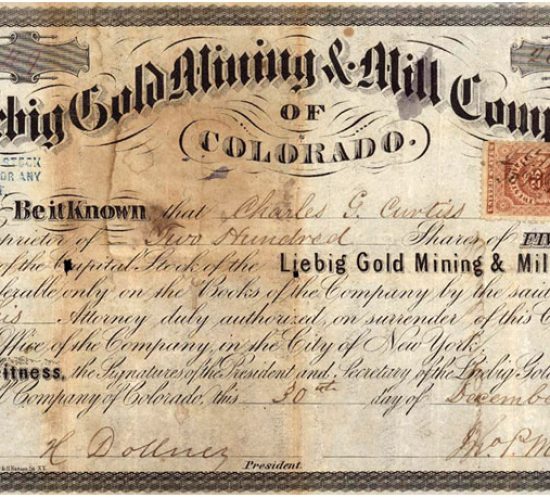 ebig Gold Mining & Mill Comp
OF
COLORADO.
STOCK
OR ANY
Be it Known that Charles G. Curtiss
prietor of Two Hundred Shares of FIV
of the Capital Stock of the Liebig Gold Mining & Mil
ferable only on the Books of the Company by the said
is Attorney duly authorized, on surrender of this C
Office of the Company, in the City of New York.
itness, the Signatures of the President and Secretary of the Liebig Gold
l Company of Colorado, this 30st day of Decembe
H Dollner
President.